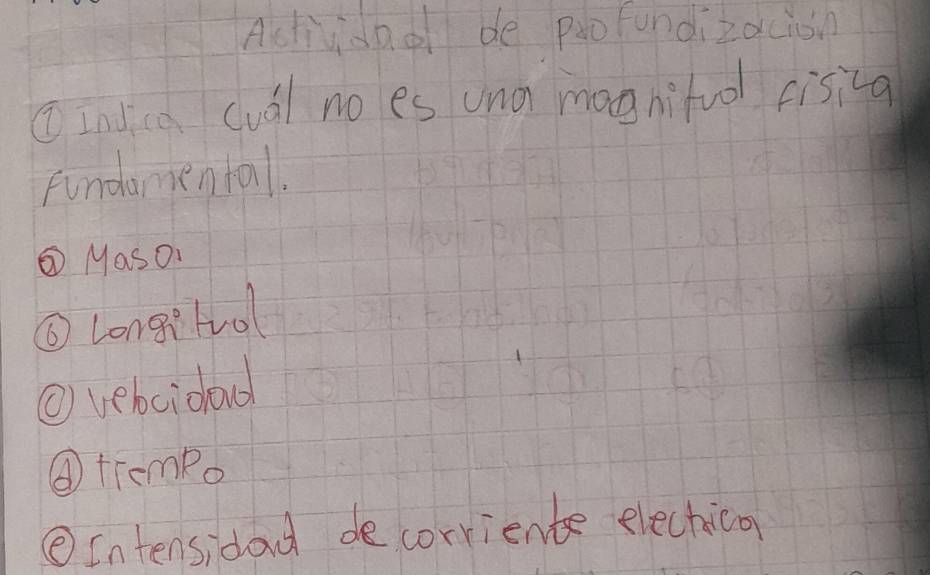 Actividad de profundización
① Indica cuál no es una magnitud física
Fundamental.
ⓐ Masa.
ⓑ Longitud
ⓒ velocidad
ⓓ tiempo
ⓔ Intensidad de corriente electrica